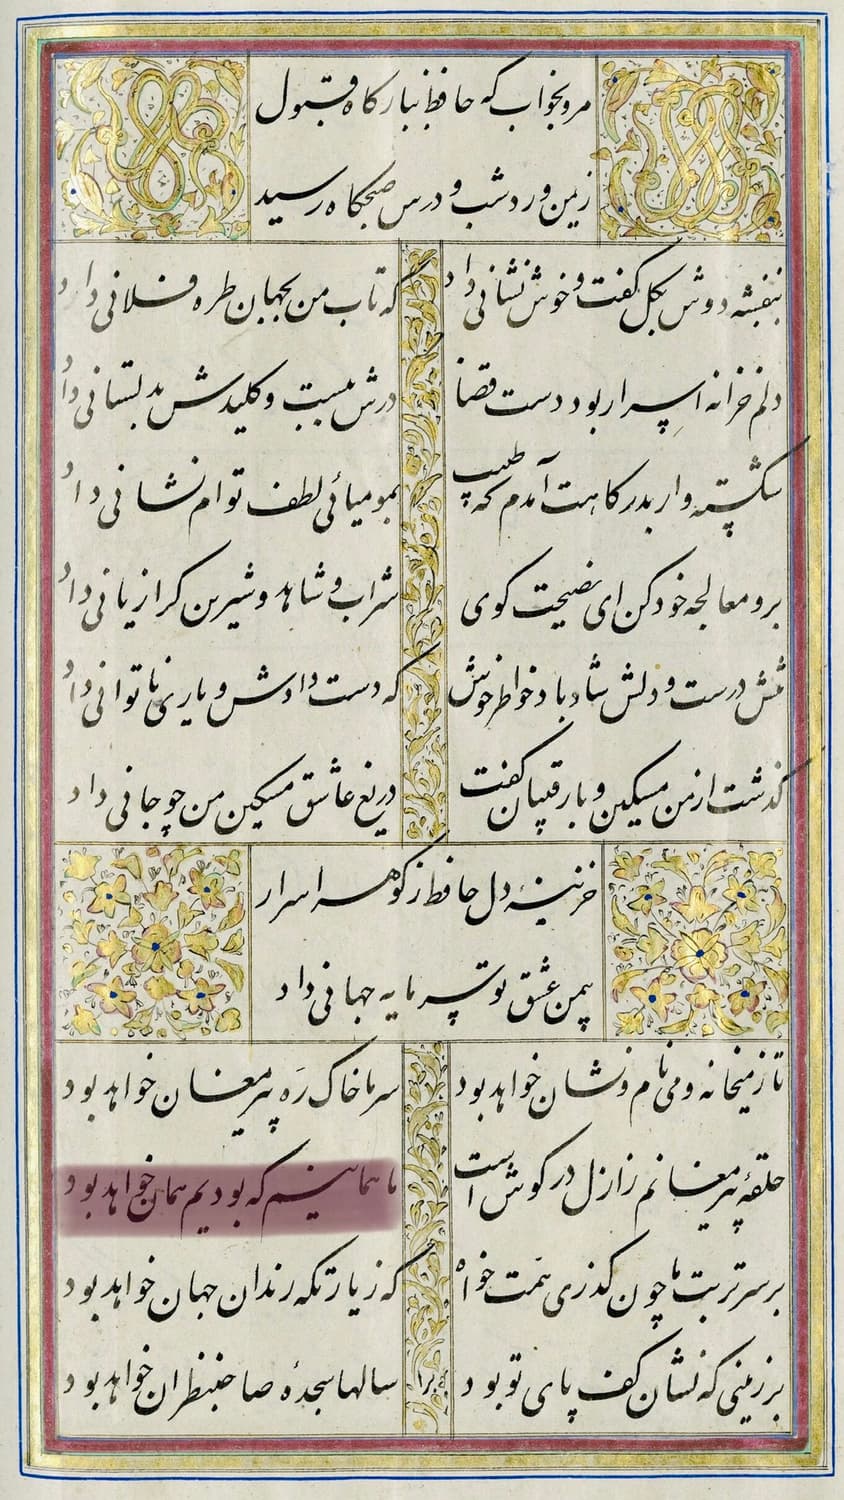 مرو بخواب که حافظ ببارگاه قبول
ز یمن ورد شب و درس صبحگاه رسید
بنفشه دوش بگل گفت و خوش نشانی داد
که تاب من بجهان طره فلانی داد
دلم خزانه اسرار بود دست قضا
درش ببست و کلیدش بدلستانی داد
شکسته وار بدرگاهت آمدم که طبیب
بمومیائی لطف توام نشانی داد
برو معالجه خود کن ای نصیحت گوی
شراب و شاهد و شیرین کرا زیانی داد
تنش درست و دلش شاد باد خاطر خوش
که دست دادش و یاری ناتوانی داد
گذشت از من مسکین و با رقیبان گفت
دریغ عاشق مسکین من چو جانی داد
خزینهٔ دل حافظ ز گوهر اسرار
بیمن عشق تو سرمایه جهانی داد
تا ز میخانه و می نام و نشان خواهد بود
سر ما خاک ره پیر مغان خواهد بود
حلقهٔ پیر مغانم ز ازل در گوش است
ما همانیم که بودیم همان خواهد بود
بر سر تربت ما چون گذری همت خواه
که زیارتگه رندان جهان خواهد بود
بر زمینی که نشان کف پای تو بود
سالها سجدهٔ صاحبنظران خواهد بود